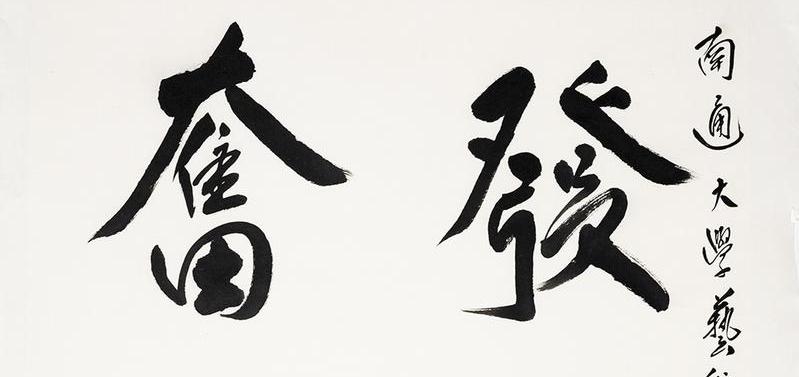 南通大學藝
發奮